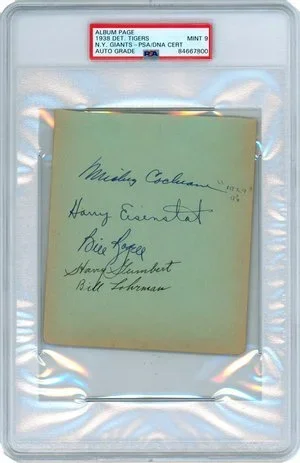 ALBUM PAGE
1938 DET. TIGERS MINT 9
N.Y. GIANTS - PSA/DNA CERT
AUTO GRADE PSA 84667800
Mickey Cochrane
Harry Eisenstat
Bill
Harry Gumbert
Bill Lohrman